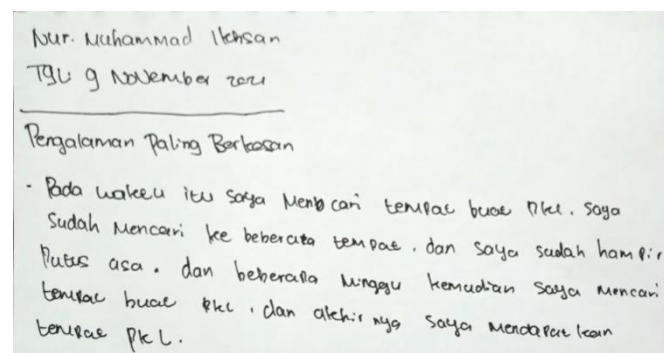 Nur. Muhammad Ikhsan
Tgl: 9 November 2021
Pengalaman Paling Berkesan
- Pada waktu itu saya Mencari tempat buat Pkl. saya
Sudah Mencari ke beberapa tempat. dan saya sudah hampir
Putus asa. dan beberapa Minggu kemudian saya Mencari
tempat buat PKL, dan akhirnya saya Mendapatkan
tempat PKL.